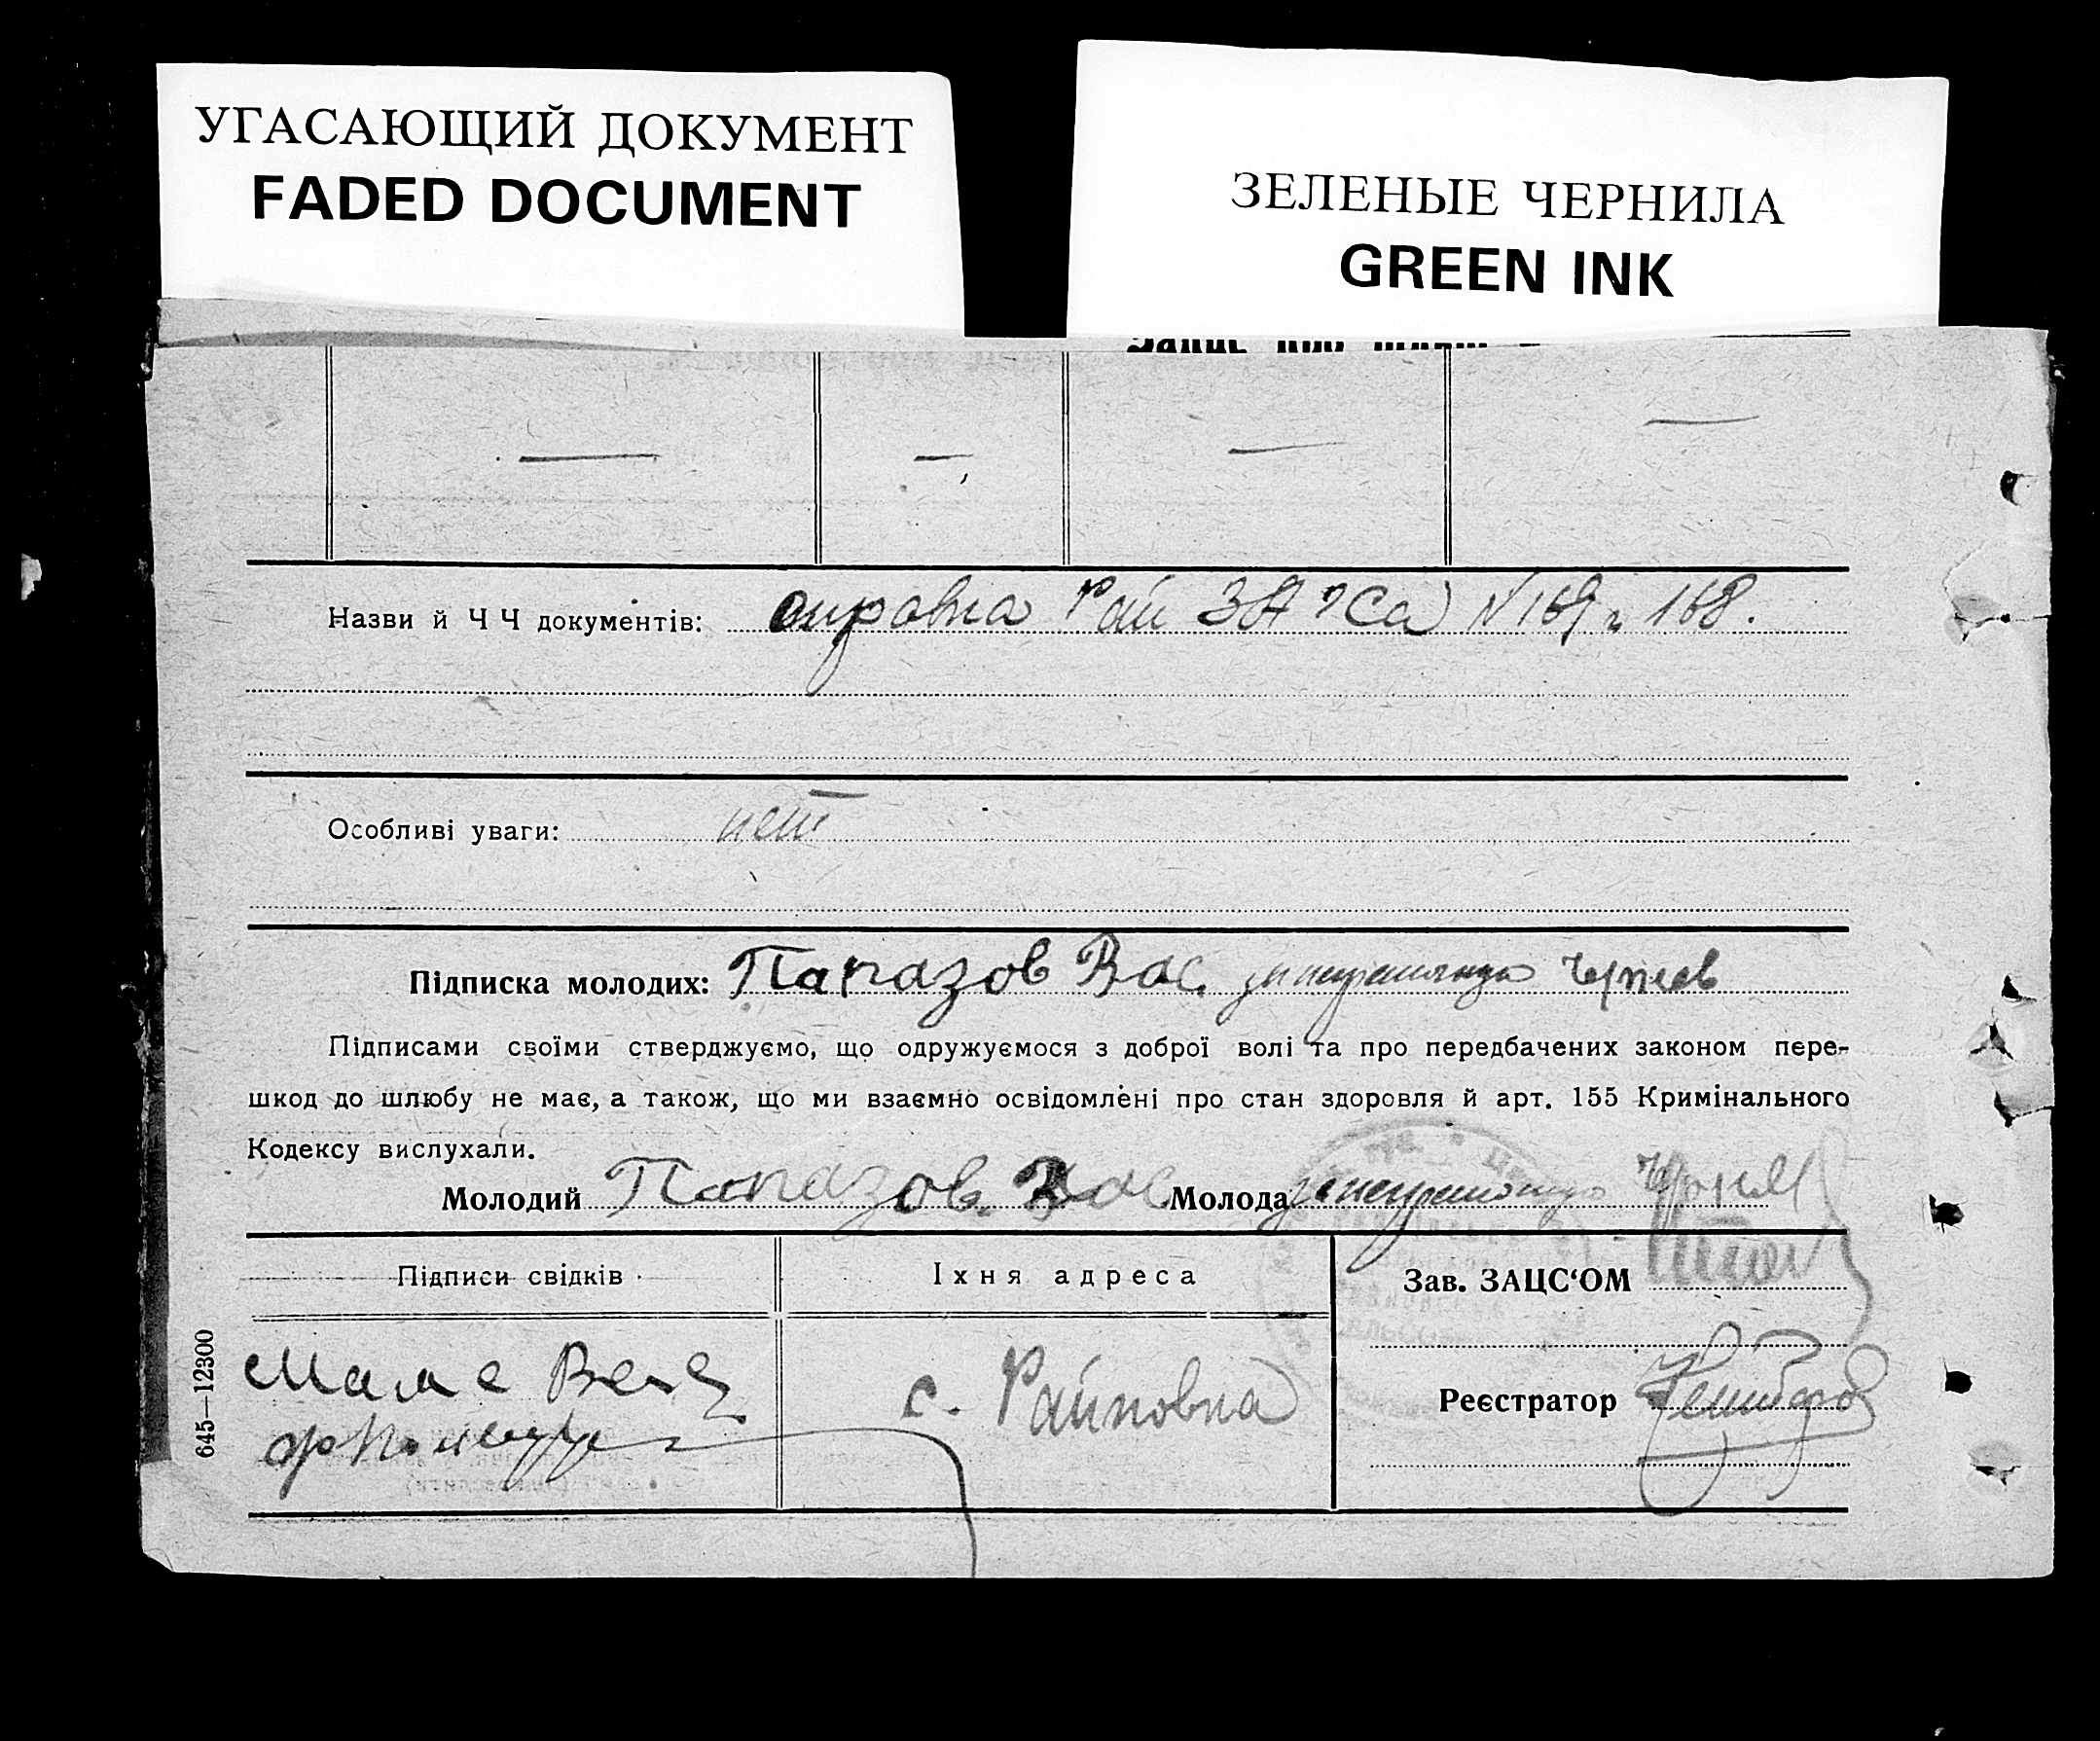 УГАСАЮЩИЙ ДОКУМЕНТ
FADED DOCUMENT
ЗЕЛЕНЫЕ ЧЕРНИЛА
GREEN INK
Назви й Ч Ч документів: справка Рай ЗАГСа N 169 и 168.
Особливі уваги: нет
Підписка молодих: Папазов Вас. за неграмотную
Підписами своїми стверджуємо, що одружуємося з доброї волі та про передбачених законом пере-
шкод до шлюбу не має, а також, що ми взаємно освідомлені про стан здоровля й арт. 155 Кримінального
Кодексу вислухали.
Молодий Папазов. Вас Молода за неграмотную
Підписи свідків
Їхня адреса
Зав. ЗАЦС‘ОМ
с. Райновка
Реєстратор
645—12300